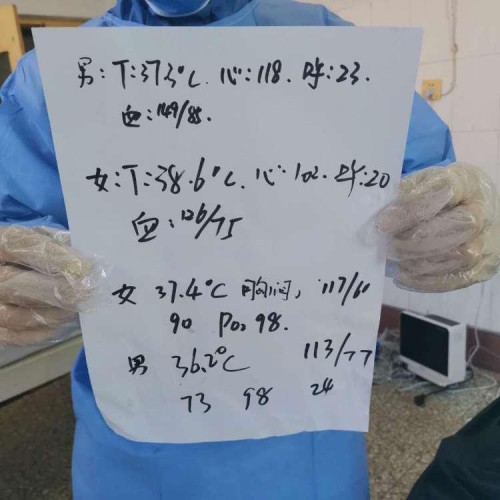 男：T：37.3℃. 心：118. 呼：23.
血：149/88.
女：T：38.6℃. 心：102. 呼：20
血：126/75
女 37.4℃ 胸闷， 117/60
90 Po₂ 98.
男 36.2℃ 113/77
73 98 24